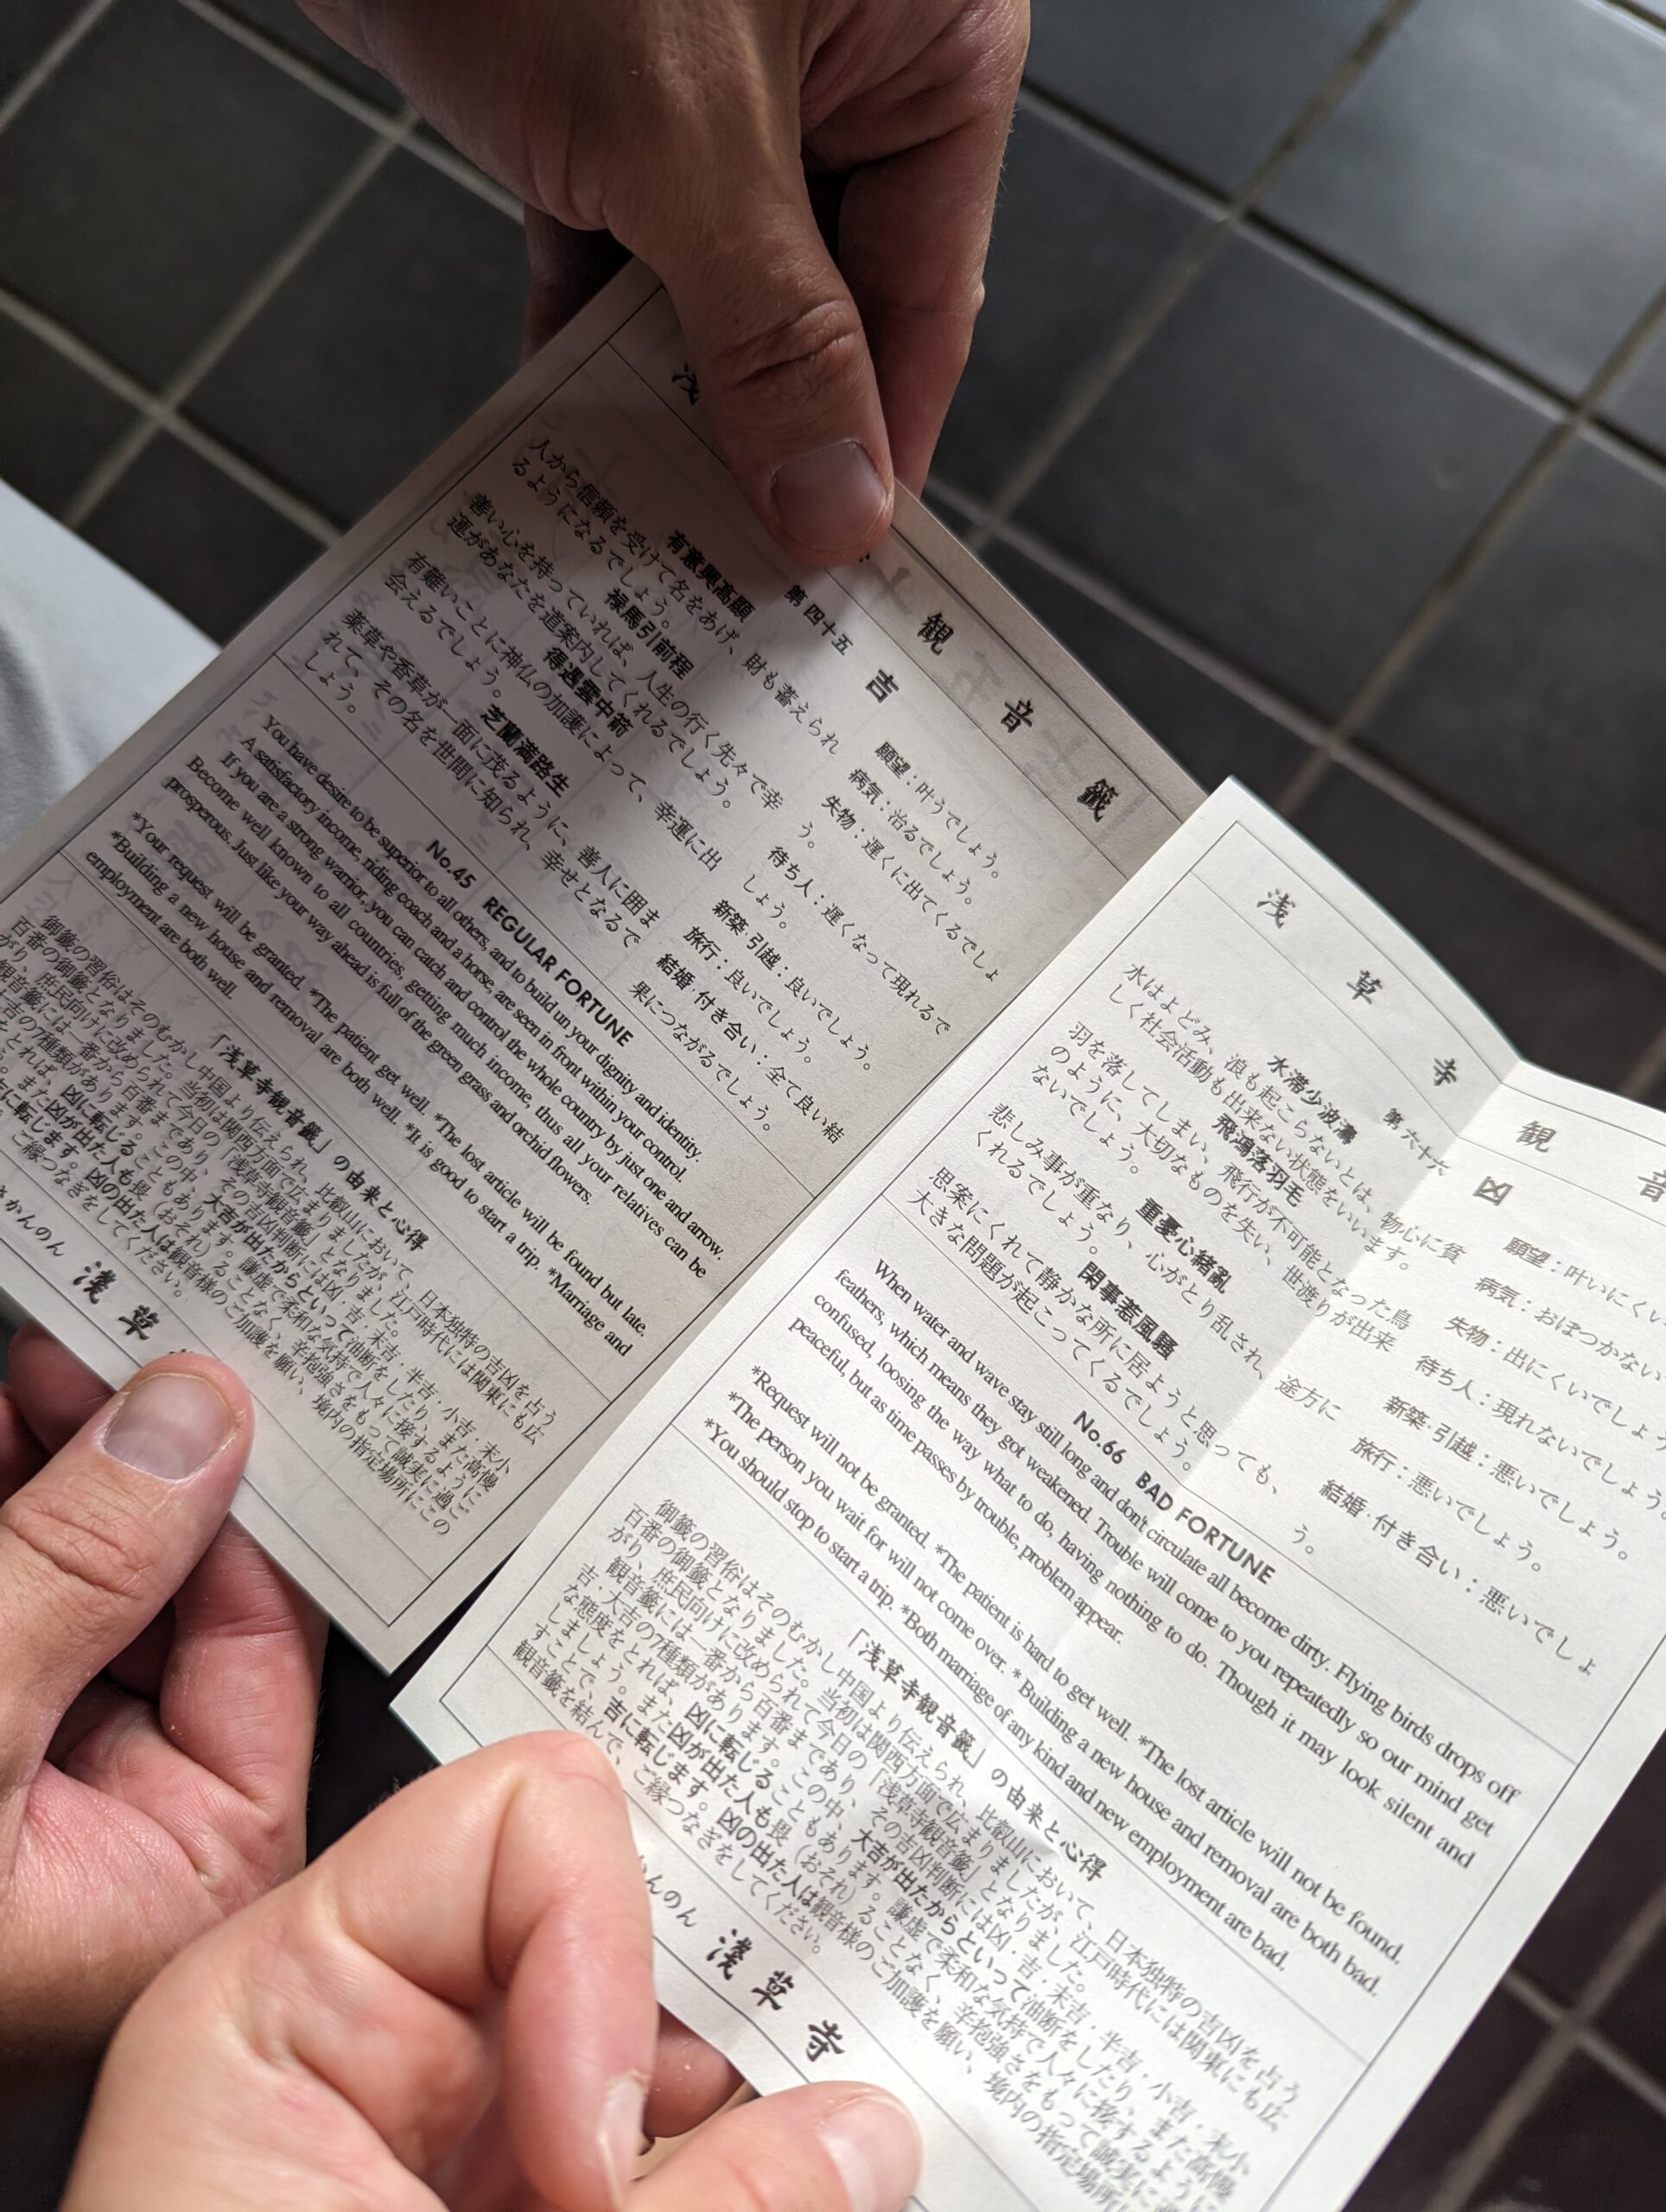 浅
観音籤
第四十五 吉
有意興高顕
人から信頼を受けて名をあげ、財も蓄えられ
るようになるでしょう。
禄馬引前程
善い心を持っていれば、人生の行く先々で幸
運があなたを道案内してくれるでしょう。
得遇雲中箭
有難いことに神仏の加護によって、幸運に出
会えるでしょう。
芝蘭満路生
薬草や香草が一面に茂るように、善人に囲ま
れて、その名を世間に知られ、幸せとなるで
しょう。
願望：叶うでしょう。
病気：治るでしょう。
失物：遅くに出てくるでしょ
う。
待ち人：遅くなって現れるで
しょう。
新築・引越：良いでしょう。
旅行：良いでしょう。
結婚・付き合い：全て良い結
果につながるでしょう。
No.45 REGULAR FORTUNE
You have desire to be superior to all others, and to build un your dignity and identity.
A satisfactory income, riding coach and a horse, are seen in front within your control.
If you are a strong warrior, you can catch and control the whole country by just one and arrow.
Become well known to all countries, getting much income, thus all your relatives can be
prosperous. Just like your way ahead is full of the green grass and orchid flowers.
*Your request will be granted. *The patient get well. *The lost article will be found but late.
*Building a new house and removal are both well. *It is good to start a trip. *Marriage and
employment are both well.
「浅草寺観音籤」の由来と心得
御籤の習俗はそのむかし中国より伝えられ、比叡山において、日本独特の吉凶を占う
百番の御籤となりました。当初は関西方面で広まりましたが、江戸時代には関東にも広
がり、庶民向けに改められて今日の「浅草寺観音籤」となりました。
観音籤には一番から百番まであり、その吉凶判断には凶・吉・末吉・半吉・小吉・末小
吉の7種類があります。この中、大吉が出たからといって油断をしたり、また高慢
をとれば、凶に転じることもあります。謙虚で柔和な気持で人々に接するように
。また凶が出た人も畏（おそれ）ることなく、辛抱強さをもって誠実に過ご
吉に転じます。凶の出た人は観音様のご加護を願い、境内の指定場所にこの
ご縁つなぎをしてください。
さかんのん 淺草
浅草寺観音
第六十六 凶
水滞少波濤
水はよどみ、浪も起こらないとは、物心に貧
しく社会活動も出来ない状態をいいます。
飛鴻落羽毛
羽を落してしまい、飛行が不可能となった鳥
のように、大切なものを失い、世渡りが出来
ないでしょう。
重憂心緒亂
悲しみ事が重なり、心がとり乱され、途方に
くれるでしょう。
閑事惹風騒
思案にくれて静かな所に居ようと思っても、
大きな問題が起こってくるでしょう。
願望：叶いにくい
病気：おぼつかない
失物：出にくいでしょう
待ち人：現れないでしょう。
新築・引越：悪いでしょう。
旅行：悪いでしょう。
結婚・付き合い：悪いでしょ
う。
No.66 BAD FORTUNE
When water and wave stay still long and don't circulate all become dirty. Flying birds drops off
feathers, which means they got weakened. Trouble will come to you repeatedly so our mind get
confused, loosing the way what to do, having nothing to do. Though it may look silent and
peaceful, but as time passes by trouble, problem appear.
*Request will not be granted. *The patient is hard to get well. *The lost article will not be found.
*The person you wait for will not come over. * Building a new house and removal are both bad.
*You should stop to start a trip. *Both marriage of any kind and new employment are bad.
「浅草寺観音籤」の由来と心得
御籤の習俗はそのむかし中国より伝えられ、比叡山において、日本独特の吉凶を占う
百番の御籤となりました。当初は関西方面で広まりましたが、江戸時代には関東にも広
がり、庶民向けに改められて今日の「浅草寺観音籤」となりました。
観音籤には一番から百番まであり、その吉凶判断には凶・吉・末吉・半吉・小吉・末小
吉・大吉の7種類があります。この中、大吉が出たからといって油断をしたり、また高慢
な態度をとれば、凶に転じることもあります。謙虚で柔和な気持で人々に接するように
しましょう。また凶が出た人も畏（おそれ）ることなく、辛抱強さをもって誠実に
すことで、吉に転じます。凶の出た人は観音様のご加護を願い、境内の指定場所
観音籤を結んで、ご縁つなぎをしてください。
かんのん 淺草寺